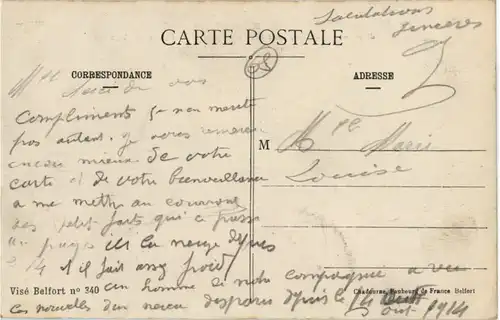 Salutations
sincères
CARTE POSTALE
CORRESPONDANCE
ADRESSE
Mlle Merci de vos
Compliments je n'en merite
pas autant. je vous remercie
encore mieux de votre
carte et de votre bienveillance
a me mettre au courant
des petit faits qui a passe
au pays ici la neige depuis
le 14 et il fait assez froid
M Mlle Marie
Louise
un homme de notre compagnie a eu
Visé Belfort nº 340
Chadourne, Faubourg de France, Belfort
les nouvelles d'un neveu disparu depuis le 14
out 1914